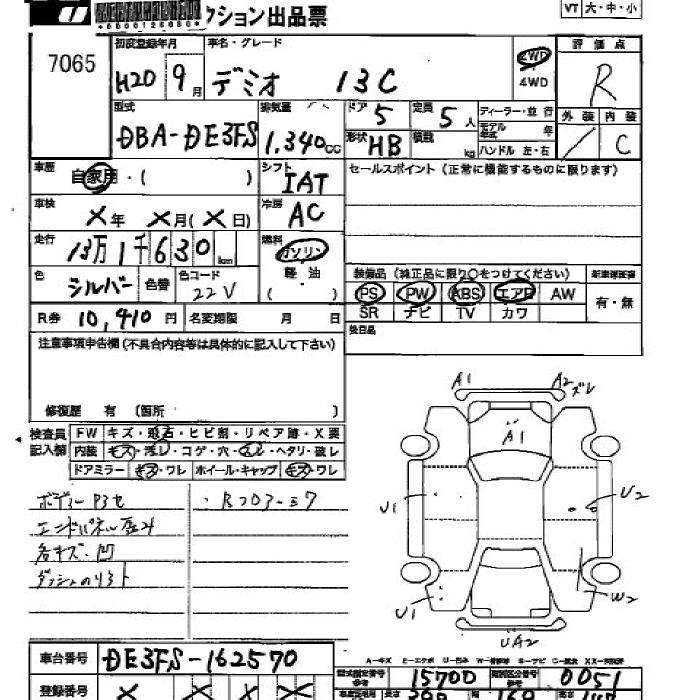 クション出品票
VT 大・中・小
7065
初度登録年月 H20 9月
車名・グレード デミオ 13C
2WD
4WD
評価点 R
型式 DBA-DE3FS
排気量 1,340cc
ドア 5 定員 5人
ディーラー・並行
形状 HB 積載 kg
モデル年式 年
ハンドル 左・右
外装 内装 C
車歴 自家用・( )
シフト IAT
セールスポイント (正常に機能するものに限ります)
車検 X年 X月(X日)
冷房 AC
走行 13万1千630km
燃料 ガソリン
軽油
( )
色 シルバー 色替 色コード 22V
装備品 (純正品に限り○をつけてください)
PS PW ABS エアB AW
SR ナビ TV カワ
有・無
R券 10,410円 名変期限 月 日
後日品
注意事項申告欄 (不具合内容等は具体的に記入して下さい)
修復歴 有 (箇所 )
検査員記入欄
FW キズ・飛石・ヒビ割・リペア跡・X要
内装 キズ・汚レ・コゲ・穴・スレ・ヘタリ・破レ
ドアミラー キズ・ワレ ホイール・キャップ キズ・ワレ
エンドパネル
各キズ・凹
A1 A2 ズレ
A1
U1 U2
U1 W2
UA2
車台番号 DE3FS-162570
A-キズ E-エクボ U-凹ミ
型式指定番号 15700 類別区分番号 0051
登録番号 X X X X